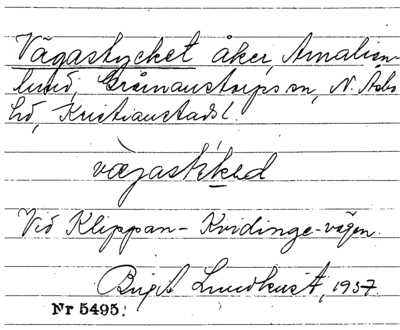 Vägastycket åker, Amalien-
lund, Gråmanstorps sn, N. Åsbo
hd, Kristianstads l.
vägastikked
Vid Klippan - Kvidinge-vägen.
Birgit Lundkvist, 1937.
Nr 5495.